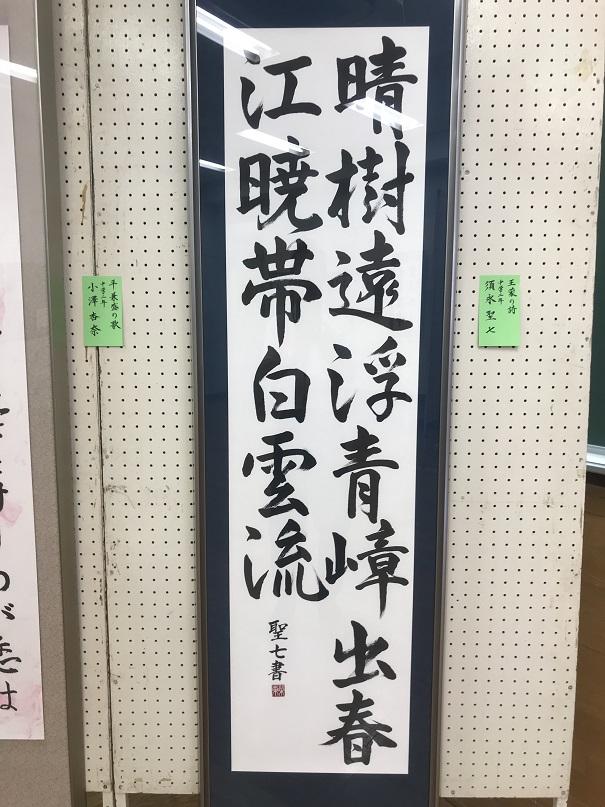 晴樹遠浮青嶂出春
江暁帯白雲流
聖七書
王粲の詩
中学二年
須永聖七
平兼盛の歌
中学二年
小澤杏奈